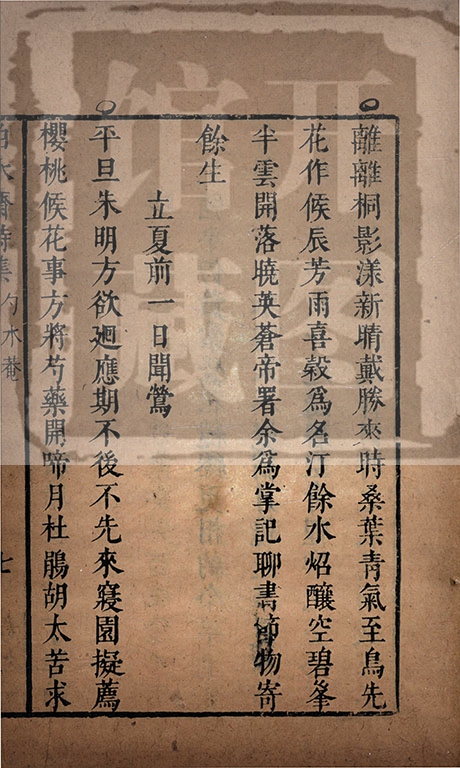 離離桐影漾新晴戴勝來時桑葉青氣至鳥先
花作候辰芳雨喜穀爲名汀餘水炤釀空碧峯
半雲開落曉英蒼帝署余爲掌記聊書節物寄
餘生
立夏前一日聞鶯
平旦朱明方欲廻應期不後不先來寢園擬薦
櫻桃候花事方將芍藥開啼月杜鵑胡太苦求
白水齋詩集 勺水菴 七
開館
圖藏